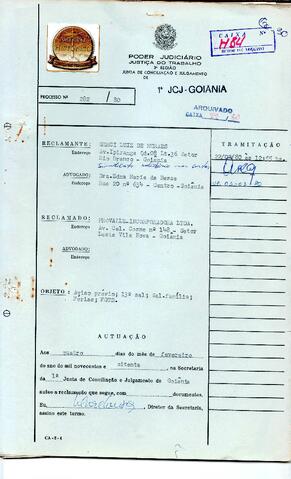 CAIXA
H84
PODER JUDICIÁRIO
JUSTIÇA DO TRABALHO
JUNTA DE CONCILIAÇÃO E JULGAMENTO
DE
1ª JCJ-GOIÂNIA
PROCESSO Nº 282 / 80
ARQUIVADO
CAIXA
RECLAMANTE:
Endereço
Av.Ipiranga Qd.08 Lt.36 Setor
Rio Branco - Goiania
ADVOGADO: Dra.Edna Maria de
Endereço Rua 20 nº 634 - Centro - Goiania
RECLAMADO: INCORPORADORA LTDA.
Endereço Av. Cel. Cosme nº 148 - Setor
Leste Vila Nova - Goiania
ADVOGADO:
Endereço
OBJETO: Aviso prévio; 13º sal; Sal.família;
Ferias; FGTS.
TRAMITAÇÃO
AUTUAÇÃO
Aos quatro dias do mês de fevereiro
do ano de mil novecentos e oitenta, na Secretaria
da 1ª Junta de Conciliação e Julgamento de Goiania
autuo a reclamação que segue, com documentos.
Eu, Diretor da Secretaria,
assino este termo.